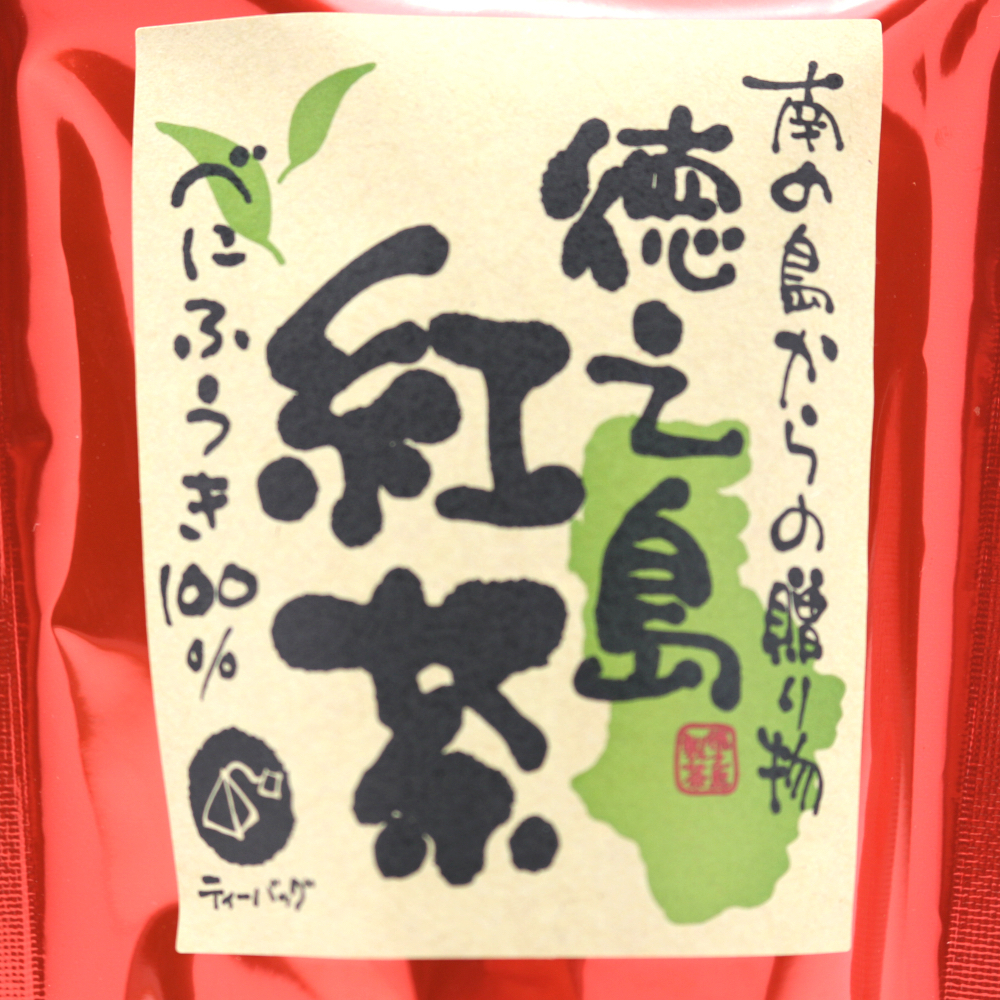 南の島からの贈り物
徳之島
紅茶
べにふうき100%
ティーバッグ